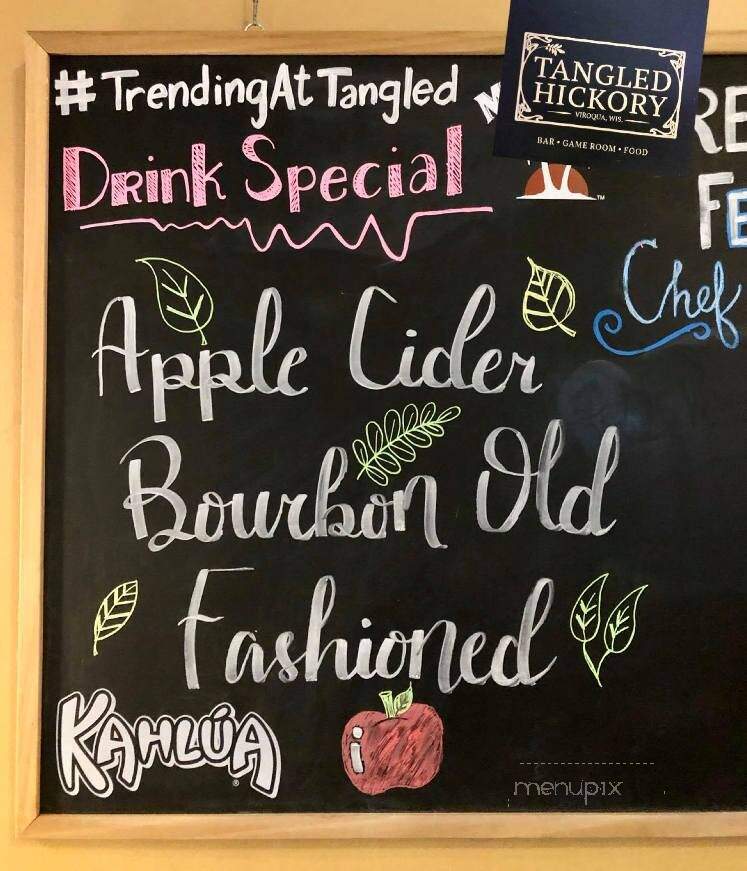 #TrendingAtTangled
TANGLED
HICKORY
VIROQUA, WIS.
BAR • GAME ROOM • FOOD
Drink Special
TM
Chef
Apple Cider
Bourbon Old
Fashioned
KAHLÚA
®
menupix